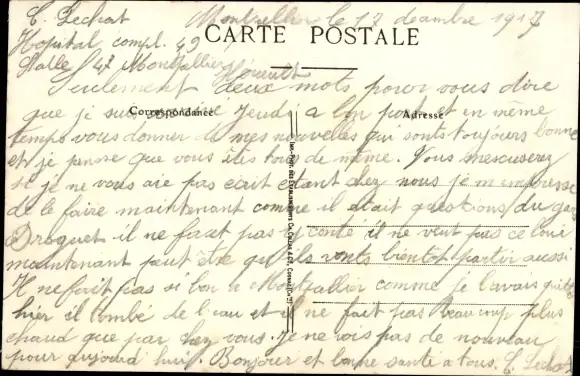 C. Lechat Montpellier le 12 decembre 1917
Hopital compl. 49 CARTE POSTALE
Salle 42 Montpellier Herault
Seulement deux mots pour vous dire
que je suis Jeudi a bon port et en même
Correspondance Adresse
temps vous donner de mes nouvelles qui sont toujours bonne
et je pense que vous êtes tous de même. Vous mescuserez
si je ne vous aie pas écrit étant chez nous je m'empresse
de le faire maintenant comme il était questions du gas
Droguet il ne faut pas y conté il ne veut pas ce loui
maintenant peut être qu'ils vonts bientôt partir aussi
Il ne fait pas si bon a Montpellier comme je l'avais quitté
hier il tombé de l'eau et il ne fait pas beaucoup plus
chaud que par chez vous. Je ne vois pas de nouveau
pour aujourd hui. Bonjour et bonne santé a tous. C. Lechat